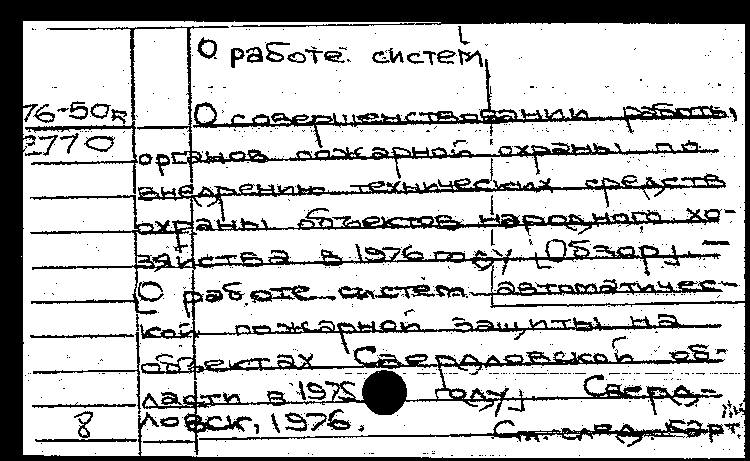 О работе систем
76-50к
О совершенствовании работы
2770
органов пожарной охраны по
внедрению технических средств
охраны объектов народного хо-
зяйства в 1976 году [Обзор]. —
О работе систем автоматичес-
кой пожарной защиты на
объектах Свердловской об-
ласти в 1975 году] Сверд-
ловск, 1976.
8
См. след. карт.